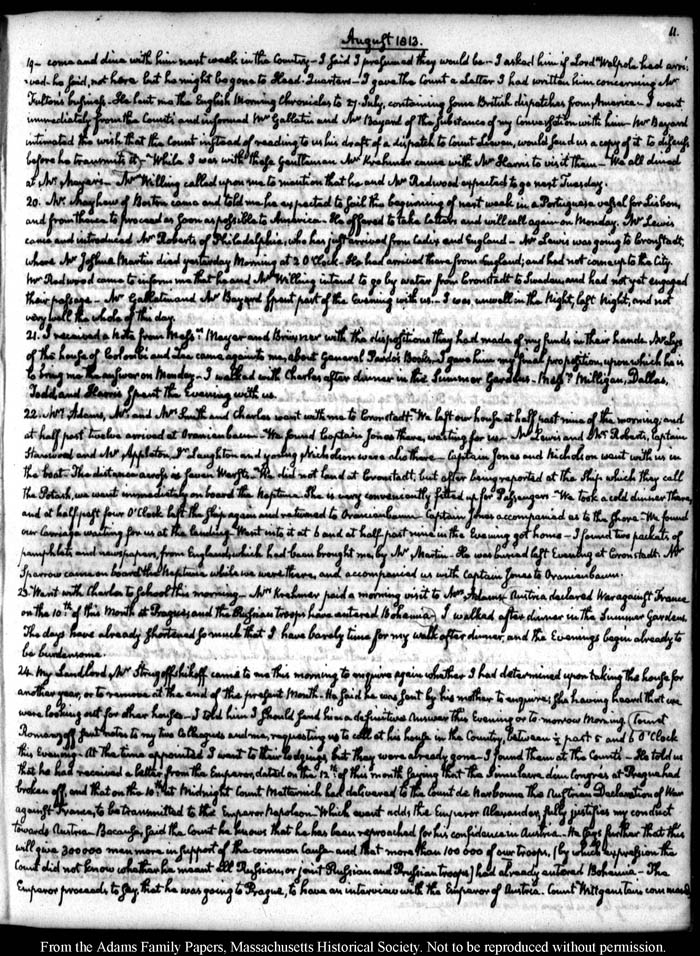 11.
August 1813.
19— come and dine with him next week in the Country— I said I presumed they would be— I asked him if Lord Walpole had arri-
ved— he said, not here but he might be gone to Head-Quarters— I gave the Count a Letter I had written him concerning Mr
Fulton's business— He lent me the English Morning Chronicles to 27. July, containing some British dispatches from America— I went
immediately from the Count's and informed Mr Gallatin and Mr Bayard of the substance of my Conversation with him— Mr Bayard
intimated the wish that the Count instead of reading to us his draft of a dispatch to Count Lieven, would send us a copy of it to discuss
before he transmits it,— While I was with these Gentlemen Mr Krehmer came with Mr Harris to visit them— We all dined
at Mr Meyer's— Mr Willing called upon me to mention that he and Mr Redwood expected to go next Tuesday.
20. Mr Mayhew of Boston came and told me he expected to sail the beginning of next week in a Portuguese vessel for Lisbon,
and from thence to proceed as soon as possible to America— He offered to take letters and will call again on Monday. Mr Lewis
came and introduced Mr Roberts of Philadelphia, who has just arrived from Cadiz and England— Mr Lewis was going to Cronstadt,
where Mr Joshua Martin died yesterday Morning at 2 O'Clock— He had arrived there from England; and had not come up to the City.
Mr Redwood came to inform me that he and Mr Willing intend to go by water from Cronstadt to Sweden, and had not yet engaged
their passage— Mr Gallatin and Mr Bayard spent part of the Evening with us— I was unwell in the Night, last Night, and not
very well the whole of this day.
21. I received a Note from Messrs Meyer and Bruxner with the dispositions they had made of my funds in their hands. Mr
of the house of Colombi and Lea came again to me, about General Pardo's Books. I gave him my final proposition, upon which he is
to bring me the answer on Monday— I walked with Charles after dinner in the Summer Gardens. Messrs Milligan, Dallas,
Todd, and Harris spent the Evening with us.
22. Mrs Adams, Mr and Mrs Smith and Charles went with me to Cronstadt— We left our house at half past nine of the morning, and
at half past twelve arrived at Oranienbaum— We found Captain Jones there, waiting for us— Mr Lewis and Mr Roberts, Captain
Stanwood and Mr Appleton, Dr Laughton and young Nicholson were also there— Captain Jones and Nicholson went with us in
the boat— The distance across is seven Wersts— We did not land at Cronstadt, but after being reported at the Ship which they call
the Potash, we went immediately on board the Neptune. She is very conveniently fitted up for Passengers— We took a cold dinner there,
and at half past four O'Clock left the Ship again and returned to Oranienbaum— Captain Jones accompanied us to the Shore— We found
our Carriage waiting for us at the landing. Went into it at 6 and at half-past nine in the Evening got home— I found two packets of
pamphlets and newspapers, from England, which had been brought me, by Mr Martin— He was buried last Evening at Cronstadt. Mr
Sparrow came on board the Neptune while we were there, and accompanied us with Captain Jones to Oranienbaum.
23. Went with Charles to School this morning— Mrs Krehmer paid a morning visit to Mrs Adams. Austria declared War against France
on the 10th of this Month at Prague, and the Russian troops have entered Bohemia. I walked after dinner in the Summer Gardens.
The days have already shortened so much that I have barely time for my walk after dinner, and the Evenings begin already to
be burdensome.
24. My Landlord Mr Strogofshikoff came to me this morning to enquire again whether I had determined upon taking the house for
another year, or to remove at the end of the present Month. He said he was sent by his mother to enquire; she having heard that we
were looking out for other houses— I told him I should send him a definitive Answer this Evening or to-morrow Morning. Count
Romanzoff sent notes to my two Colleagues and me, requesting us to call at his house in the Country, between ½ past 5 and 6 O'Clock
this Evening— At the time appointed I went to their lodgings but they were already gone— I found them at the Count's— He told us
that he had received a letter from the Emperor, dated on the 12th of this month saying that the Simulacre d'un Congress at Prague had
broken off, and that on the 10th at Midnight Count Metternich had delivered to the Count de Narbonne the Austrian Declaration of War
against France, to be transmitted to the Emperor Napoleon— Which event adds the Emperor Alexander, fully justifies my conduct
towards Austria— Because, said the Count he knows that he has been reproached for his confidence in Austria. He says further that this
will give 300000 men more in support of the common Cause and that more than 100 000 of our troops, (by which expression the
Count did not know whether he meant all Russian, or joint Russian and Prussian troops) had already entered Bohemia— The
Emperor proceeds to say, that he was going to Prague, to have an interview with the Emperor of Austria. Count Witgenstein commands
From the Adams Family Papers, Massachusetts Historical Society. Not to be reproduced without permission.